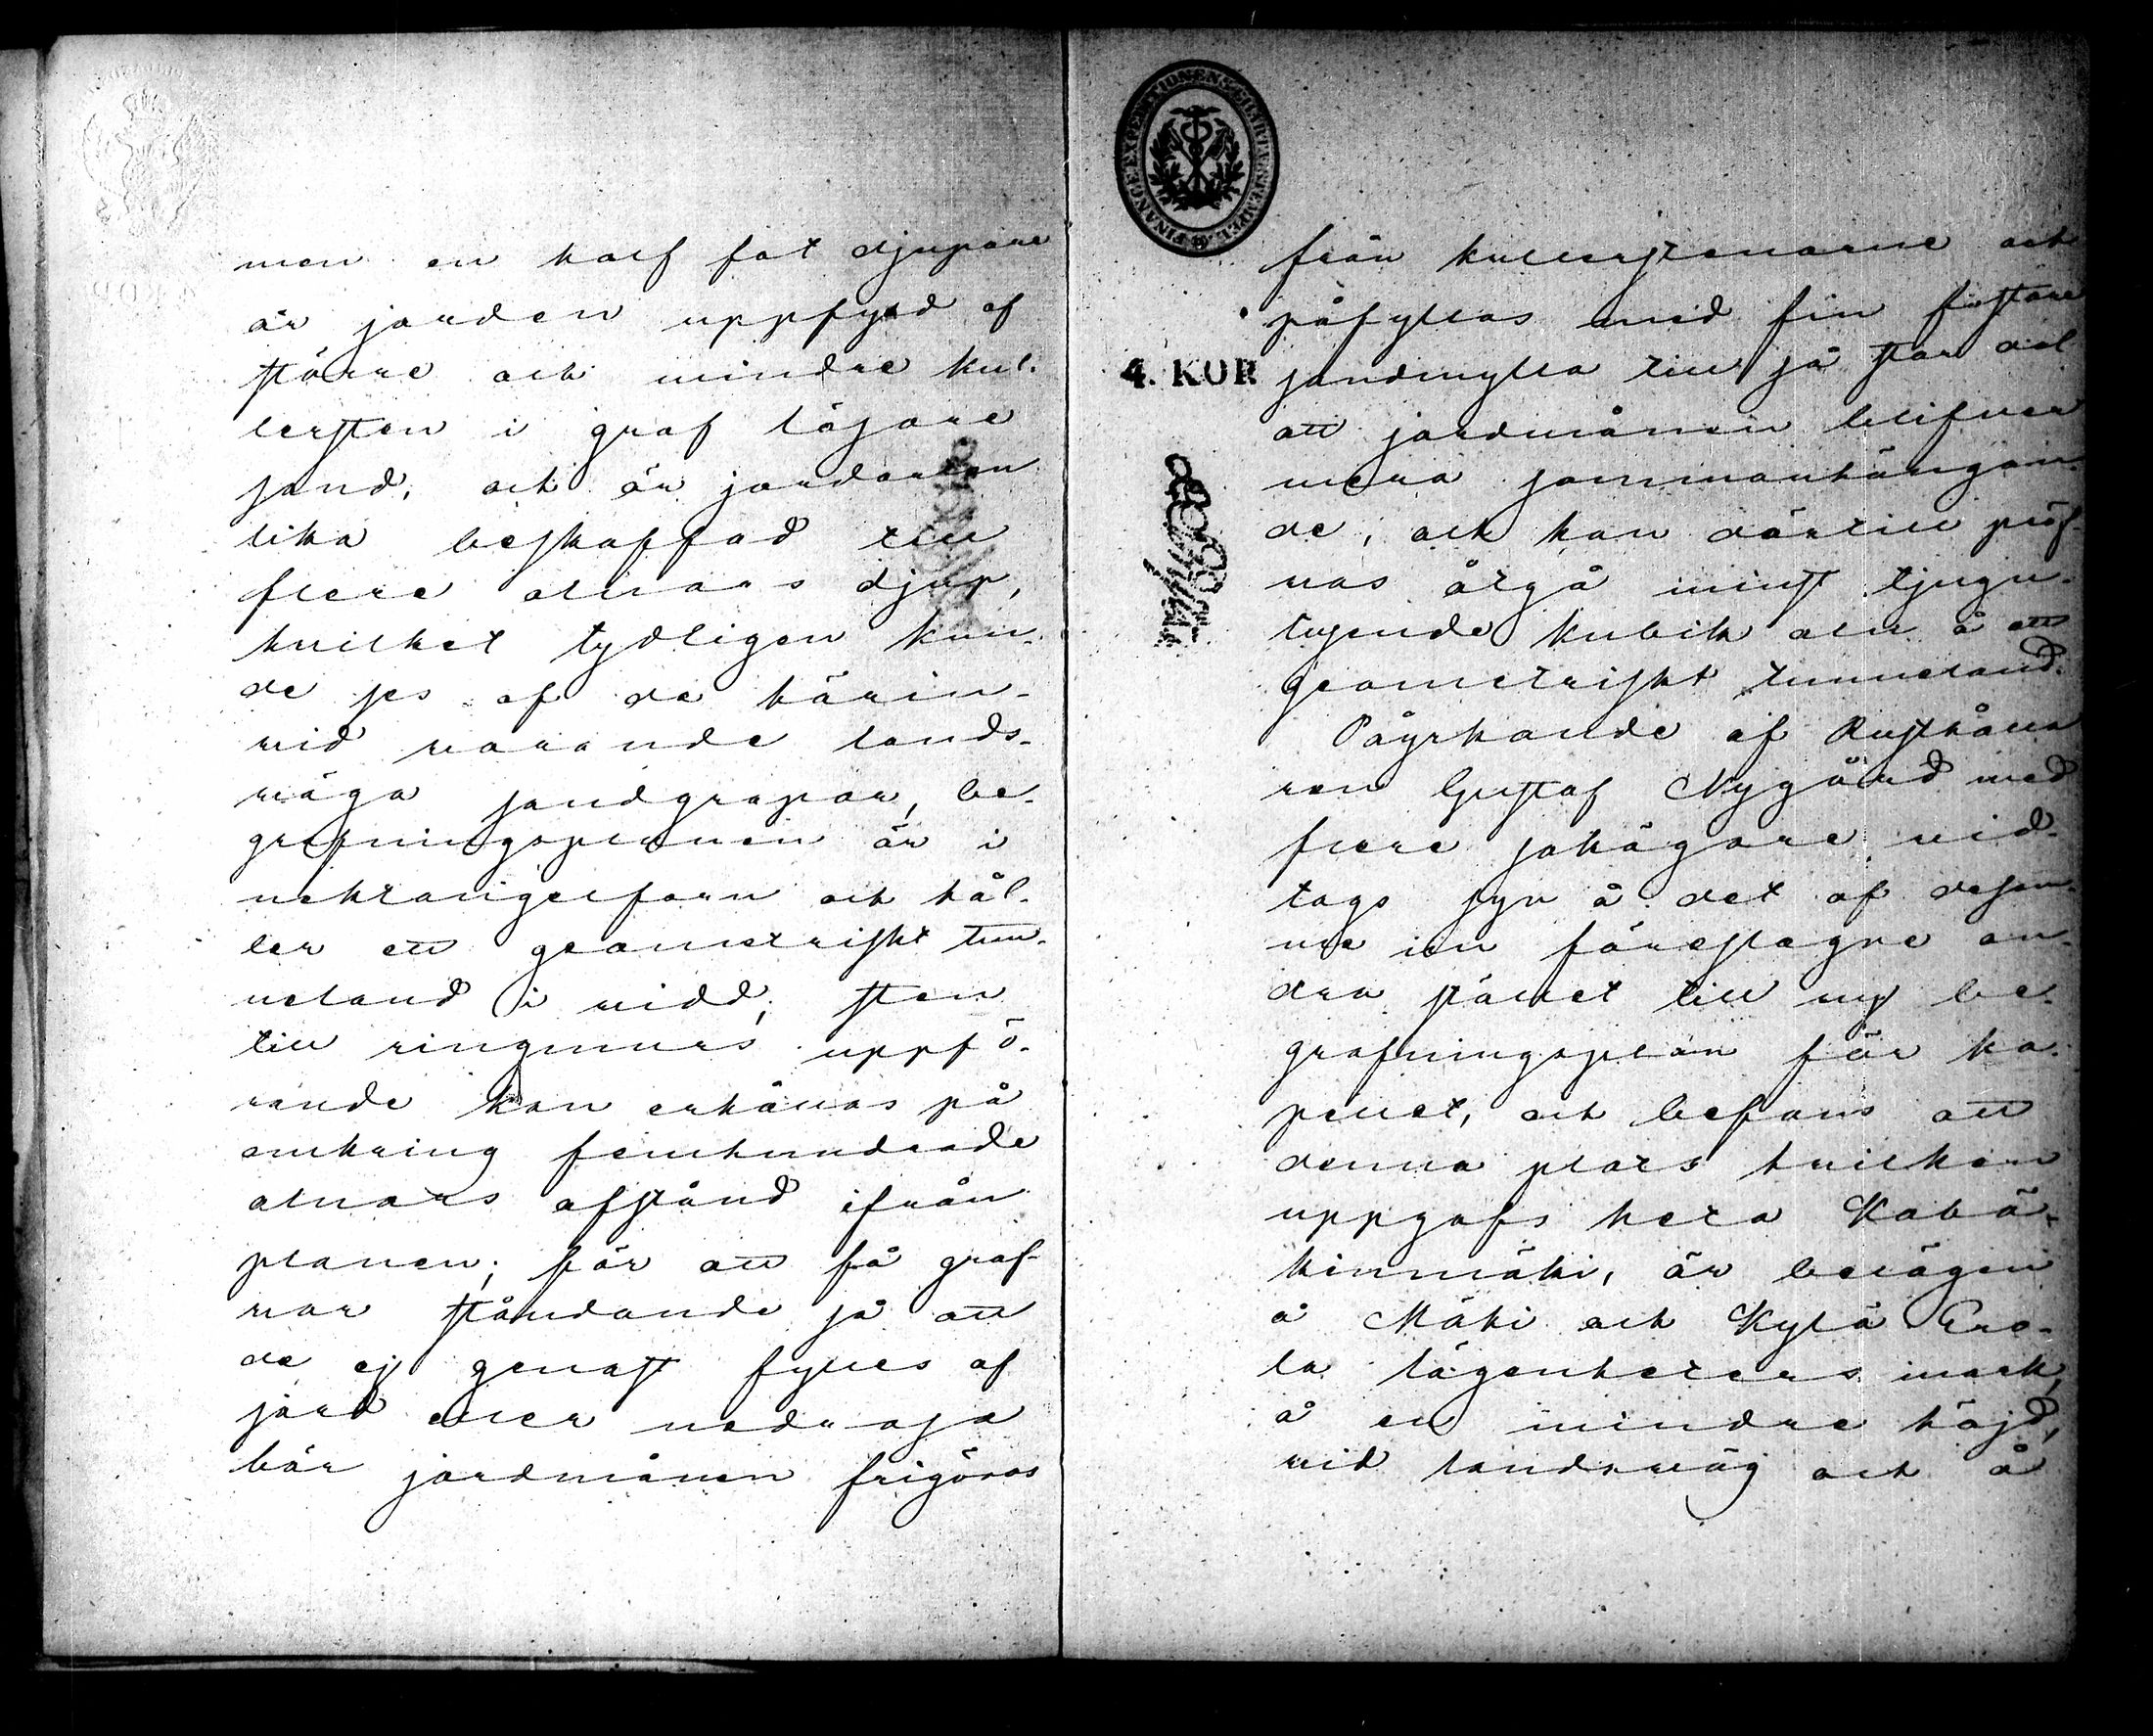 men en half fot djupare
är jorden uppfyld af
större och mindre kul-
lersten i graf lösare
sand, och är jordarten
lika beskaffad till
flere alnars djup,
hvilket tydligen kun-
de ses af de härin-
vid varande lands-
väga sandgropar, be-
grafningsplanen är i
rektangelform och hål-
ler ett geometriskt tun-
neland i vidd; sten
till ringmurs uppfö-
rande kan erhållas på
omkring femhundrade
alnars afstånd ifrån
planen; för att få graf-
var ståndande så att
de ej genast fylles af
jord eller nedrasa
bör jordmånen frigöras
FINANCEEXPEDITIONENS CHARTÆ STEMPEL
från kullerstenarne och
påfyllas med fin fastare
4. KOP.
sandmylla till så stor del
att jordmånen blifver
mera sammanhängan-
de, och kan därtill pröf-
vas åtgå minst tjugu-
tusende kubik aln å ett
geometriskt tunneland.
Påyrkande af Rusthålla
ren Gustaf Nygård med
flere sakägare vid-
togs syn å det af desam-
me nu föreslagne an-
dra stället till ny be-
grafningsplan för ka-
pellet, och befans att
denna plats hvilken
uppgafs heta Kabä-
kinmäki, är belägen
å Mäki och Kylä Ero-
la lägenheters mark,
å en mindre höjd,
vid landsväg och å